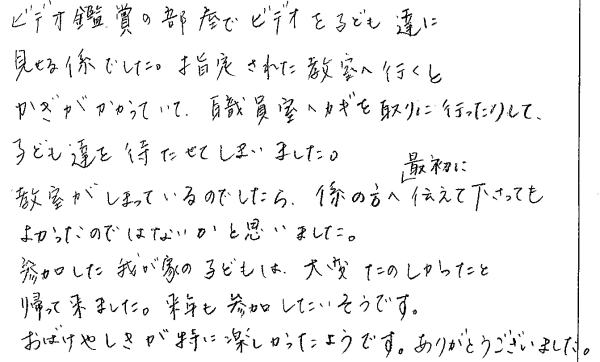 ビデオ鑑賞の部屋でビデオを子ども達に
見せる係でした。指定された教室へ行くと
かぎがかかっていて、職員室へカギを取りに行ったりして、
子ども達を待たせてしまいました。
教室がしまっているのでしたら、係の方へ最初に伝えて下さっても
よかったのではないかと思いました。
参加した我が家の子どもは、大変たのしかったと
帰って来ました。来年も参加したいそうです。
おばけやしきが特に楽しかったようです。ありがとうございました。